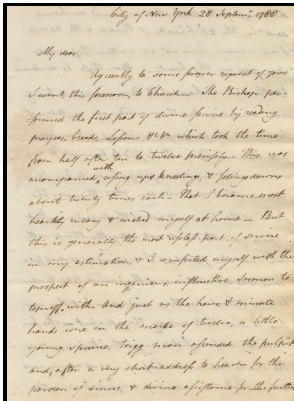 City of New York 28 Septemr. 1788
My dear.
Agreeably to some former request of yours
I went, this forenoon, to Church – The Bishop per-
formed the first part of divine service by reading
prayers, Creeds, Lessons &c &c which took the time
from half after ten to twelve precisely – This was
accompanied with risings up & kneelings, & sittings down
about twenty times each – That I became most
heartily weary & wished myself at home – But
this is generally the most useful part of service
in my estimation, & I comforted myself with the
prospect of an ingenious instructive Sermon to
top off with And just as the hour & minute
hand were on the marks of twelve, a little
young, spruce, trigg man ascended the pulpit
and, after a very short address to heaven for the
pardon of sins, & divine assistance for the further